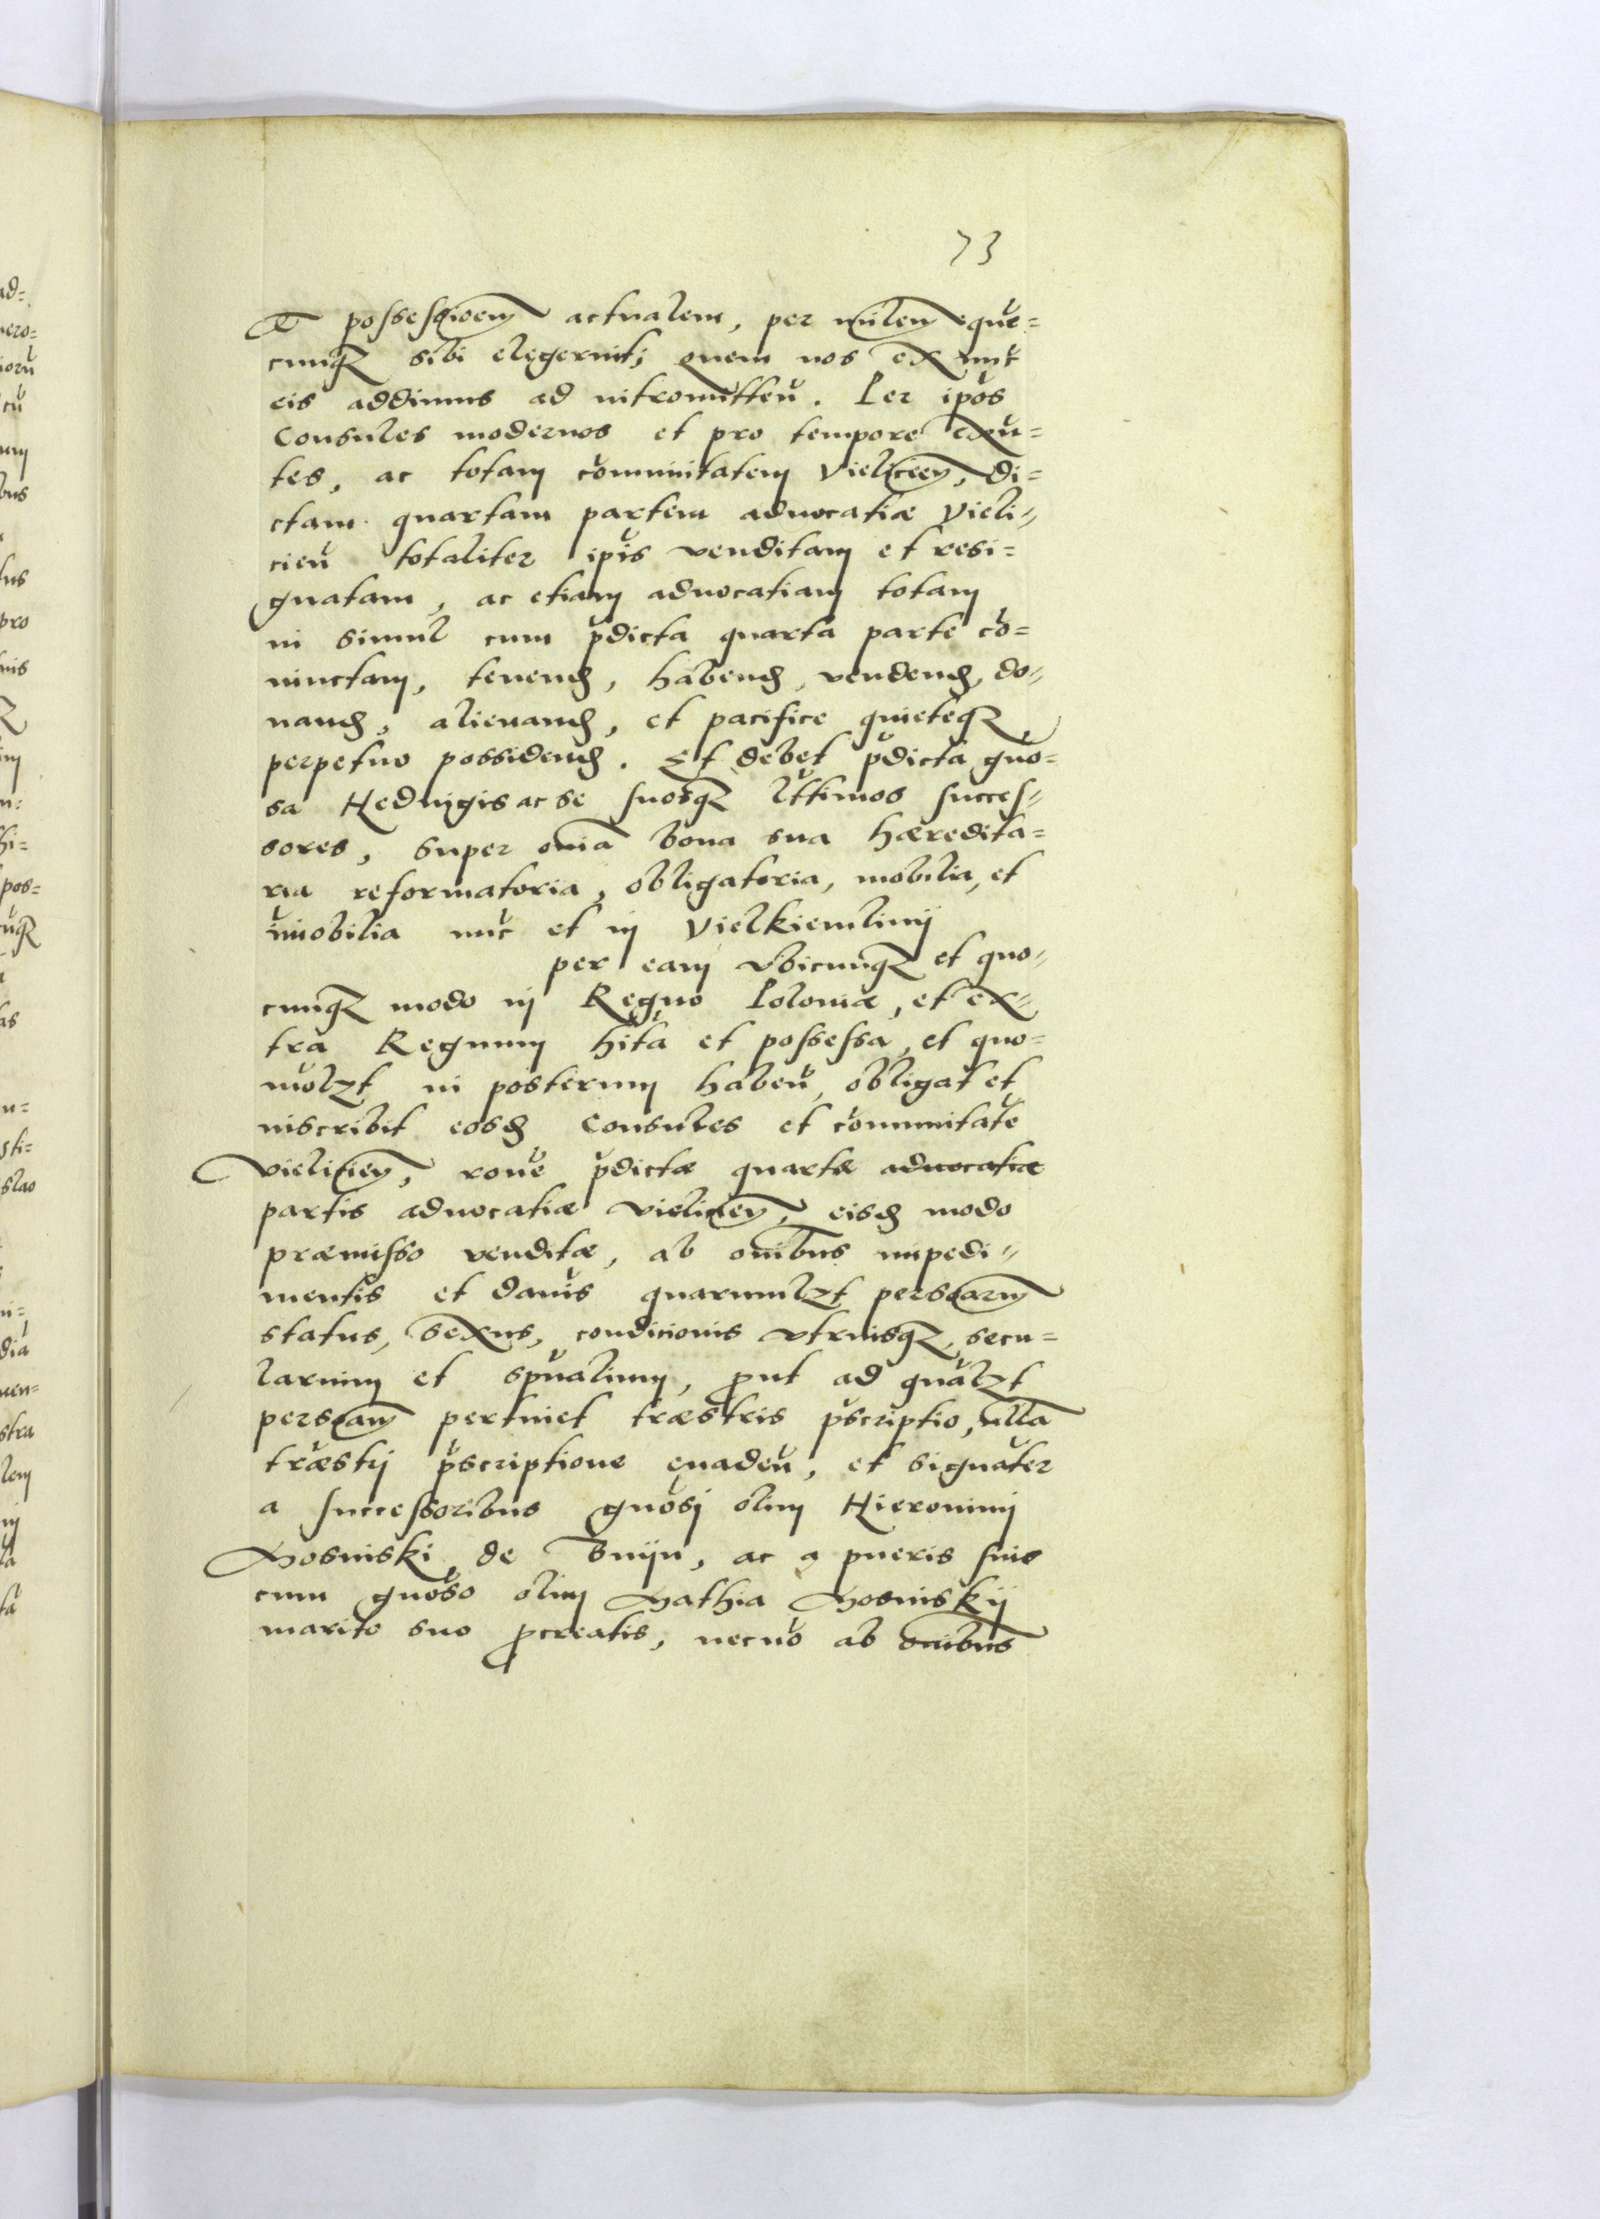 73
& possessioem actualem, per mīlem que=
cunqз sibi elegerint, quem nos ex nūc
eis addimus ad intromitteñ. Per ip̄os
Consules modernos et pro tempore exñ=
tes, ac totam com̄unitatem Vielicien, di=
ctam quartam partem aduocatiæ Vieli=
cieñ totaliter ip̄is venditam et resi=
gnatam, ac etiam aduocatiam totam
in simul cum p̄dicta quarta parte cō=
iunctam, tenend, habend, vendend, do=
nand, alienand, et pacifice quieteqз
perpetuo possidend. Et debet p̄dicta gnō=
sa Heduigis ac se suosqз lt̄timos succes=
sores, super om̄ia bona sua hæredita=
ria reformatoria, obligatoria, mobilia, et
im̄obilia nūc et in Vielkiemlinij
per eam vbicunqз et quo=
cunqз modo in Regno Poloniæ, et ex=
tra Regnum hīta et possessa, et quo=
muōlzt in posterum habeñ, obligat et
inscribit eosd Consules et com̄unitatē
Vielicien, rōne p̄dictæ quartæ aduocatiæ
partis aduocatiæ vielicien, eisd modo
præmisso venditæ, ab om̄ibus impedi=
mentis et dānis quarumlzt personarum
status, sexus, conditionis vtriusqз, secu=
larium et sp̄ualium, prout ad quālzt
personam pertinet træstris p̄scriptio, ulla
træstrj p̄scriptione euadeñ, et signāter
a successoribus gnōsj olim Hieronimj
Mosinski de Bnijn, ac a pueris suis
cum gnōso olim Mathia Mosinskij
marito suo procreatis, necnō ab om̄ibus